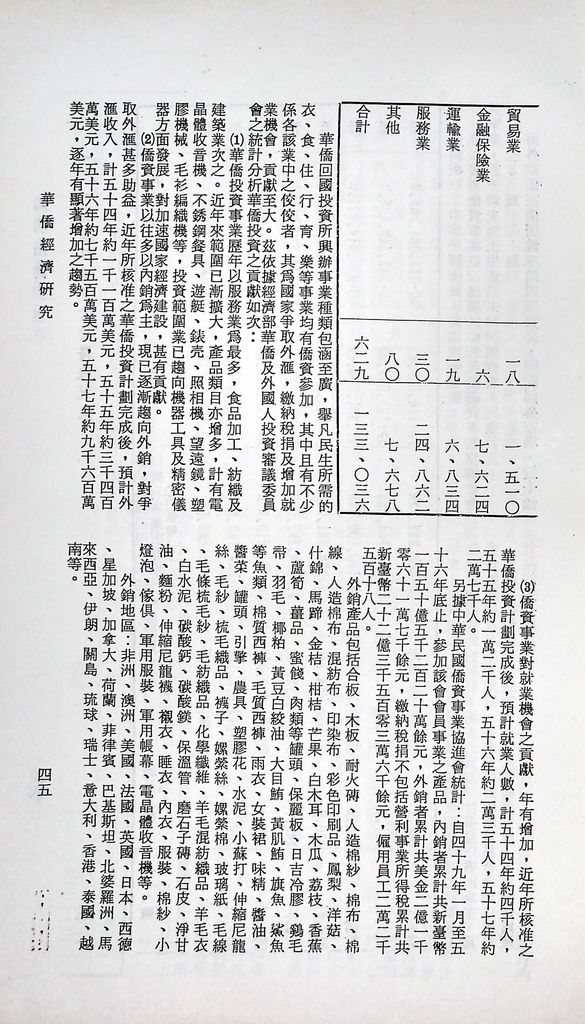 貿易業　一八　一、五一〇
金融保險業　六　七、六二四
運輸業　一九　六、八三四
服務業　三〇　二四、八六二
其他　八〇　七、六七八
合計　六二九　一三三、〇三六
華僑回國投資所興辦事業種類包涵至廣，舉凡民生所需的
衣、食、住、行、育、樂等事業均有僑資參加，其中且有不少
係各該業中之佼佼者，其爲國家爭取外滙，繳納稅捐及增加就
業機會，貢獻至大。茲依據經濟部華僑及外國人投資審議委員
會之統計分析華僑投資之貢獻如次：
⑴華僑投資事業歷年以服務業爲最多，食品加工、紡織及
建築業次之。近年來範圍已漸擴大，產品類目亦增多，計有電
晶體收音機、不銹鋼餐具、遊艇、錶壳、照相機、望遠鏡、塑
膠機械、毛衫編織機等，投資範圍業已趨向機器工具及精密儀
器方面發展，對加速國家經濟建設，甚有貢獻。
⑵僑資事業以往多以內銷爲主，現已逐漸趨向外銷，對爭
取外滙甚多助益，近年所核准之華僑投資計劃完成後，預計外
滙收入，計五十四年約一千一百萬美元，五十五年約三千四百
萬美元，五十六年約七千五百萬美元，五十七年約九千六百萬
美元，逐年有顯著增加之趨勢。
⑶僑資事業對就業機會之貢獻，年有增加，近年所核准之
華僑投資計劃完成後，預計就業人數，計五十四年約四千人，
五十五年約一萬二千人，五十六年約二萬三千人，五十七年約
二萬七千人。
另據中華民國僑資事業協進會統計：自四十九年一月至五
十六年底止，參加該會會員事業之產品，內銷者累計共新臺幣
一百五十億五千二百二十萬餘元，外銷者累計共美金二億一千
零六十一萬七千餘元，繳納稅捐不包括營利事業所得稅累計共
新臺幣二十二億三千五百零三萬六千餘元，僱用員工二萬二千
五百十八人。
外銷產品包括合板、木板、耐火磚、人造棉紗、棉布、棉
線、人造棉布、混紡布、印染布、彩色印刷品、鳳梨、洋菇、
什錦、馬蹄、金桔、柑桔、芒果、白木耳、木瓜、荔枝、香蕉
、蘆筍、薑品、蜜餞、肉類等罐頭、保麗板、日吉冷膠、鷄毛
帚、羽毛、椰粕、黃豆白絞油、大目鮪、黃肌鮪、旗魚、鯊魚
等魚類、棉質西褲、毛質西褲、雨衣、女裝裙、味精、醬油、
醬菜、罐頭、引擎、農具、塑膠花、水泥、小蘇打、伸縮尼龍
絲、毛紗、梳毛織品、襪子、嫘縈絲、嫘縈棉、玻璃紙、毛線
、毛條梳毛紗、毛紡織品、化學纖維、羊毛混紡織品、羊毛衣
、白水泥、碳酸鈣、碳酸鎂、保溫管、磨石子磚、石皮、淨甘
油、麵粉、伸縮尼龍襪、襯衣、睡衣、內衣、服裝、棉紗、小
燈泡、傢俱、軍用服裝、軍用帳幕、電晶體收音機等。
外銷地區：非洲、澳洲、美國、法國、英國、日本、西德
、星加坡、加拿大、荷蘭、菲律賓、巴基斯坦、北婆羅洲、馬
來西亞、伊朗、關島、琉球、瑞士、意大利、香港、泰國、越
南等。
華僑經濟研究
四五